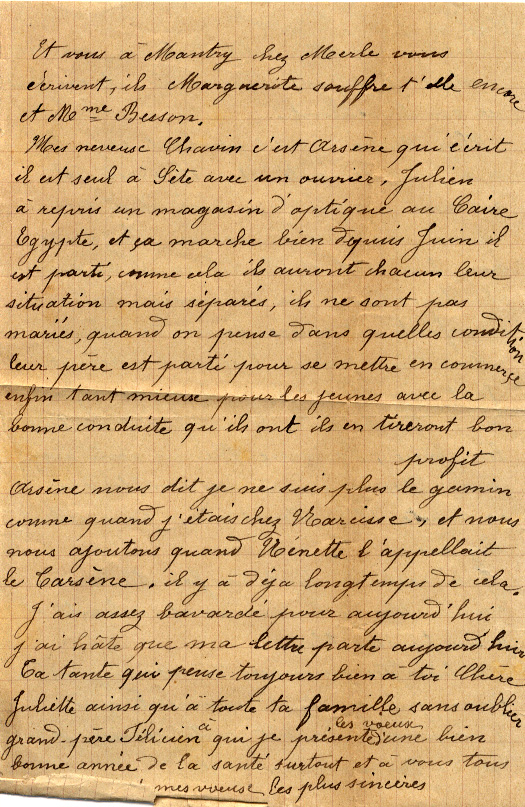 Et vous à Mantry chez Merle vous
écrivent, ils Marguerite souffre t'elle encore
et Mme Besson.
Mes neveuse Chavin c'est Arsène qui écrit
il est seul à Sète avec un ouvrier, Julien
à repris un magasin d'optique au Caire
Egypte, et ça marche bien depuis Juin il
est parti, comme cela ils auront chacun leur
situation mais séparés, ils ne sont pas
mariés, quand on pense dans quelles condition
leur père est parti pour se mettre en commerçe
enfin tant mieuse pour les jeunes avec la
bonne conduite qu'ils ont ils en tireront bon
profit
Arsène nous dit je ne suis plus le gamin
comme quand j'étais chez Narcisse, et nous
nous ajoutons quand Nénette l'appellait
le Carsène, il y à déja longtemps de cela.
J'ais assez bavardé pour aujourd'hui
j'ai hâte que ma lettre parte aujourd'hui
Ta tante qui pense toujours bien à toi Chère
Juliette ainsi qu'à toute ta famille sans oublier
grand-père Félicien à qui je présente les voeuse d'une bien
bonne année de la santé surtout et a vous tous
mes voeuse les plus sincères